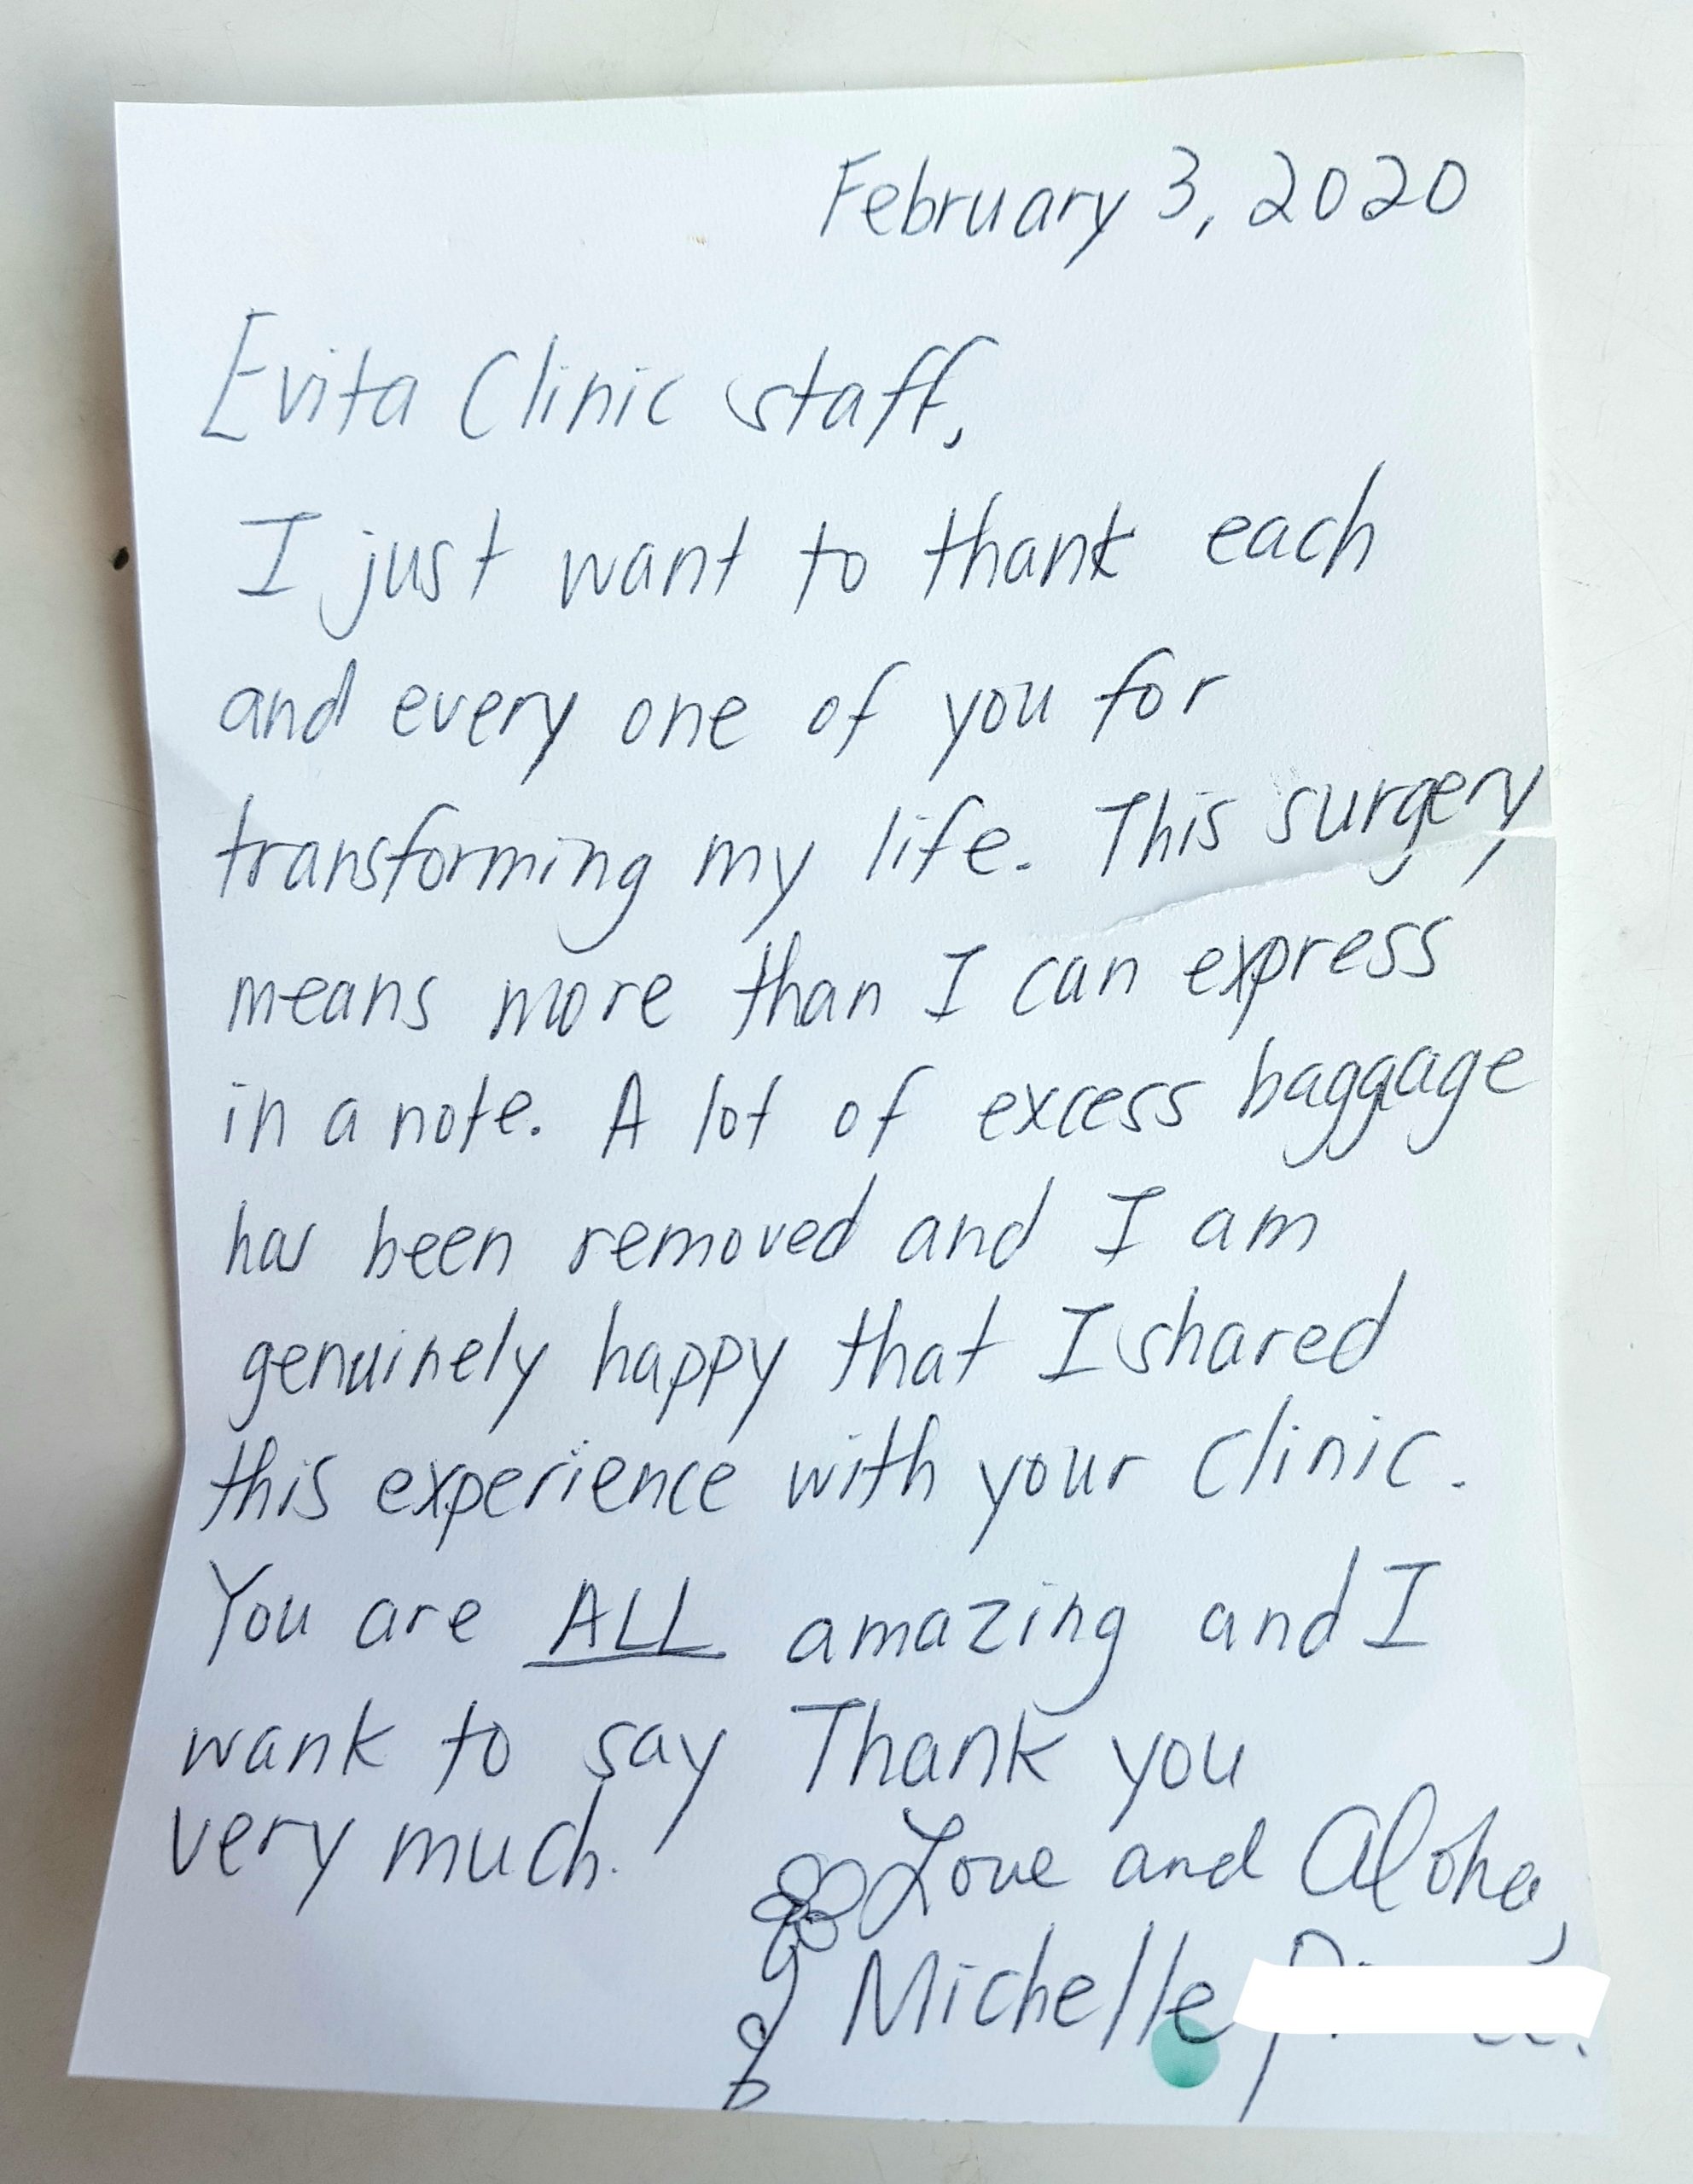 February 3, 2020
Evita Clinic staff,
I just want to thank each
and every one of you for
transforming my life. This surgery
means more than I can express
in a note. A lot of excess baggage
has been removed and I am
genuinely happy that I shared
this experience with your clinic.
You are ALL amazing and I
wank to say Thank you
very much.
Love and Aloha,
Michelle